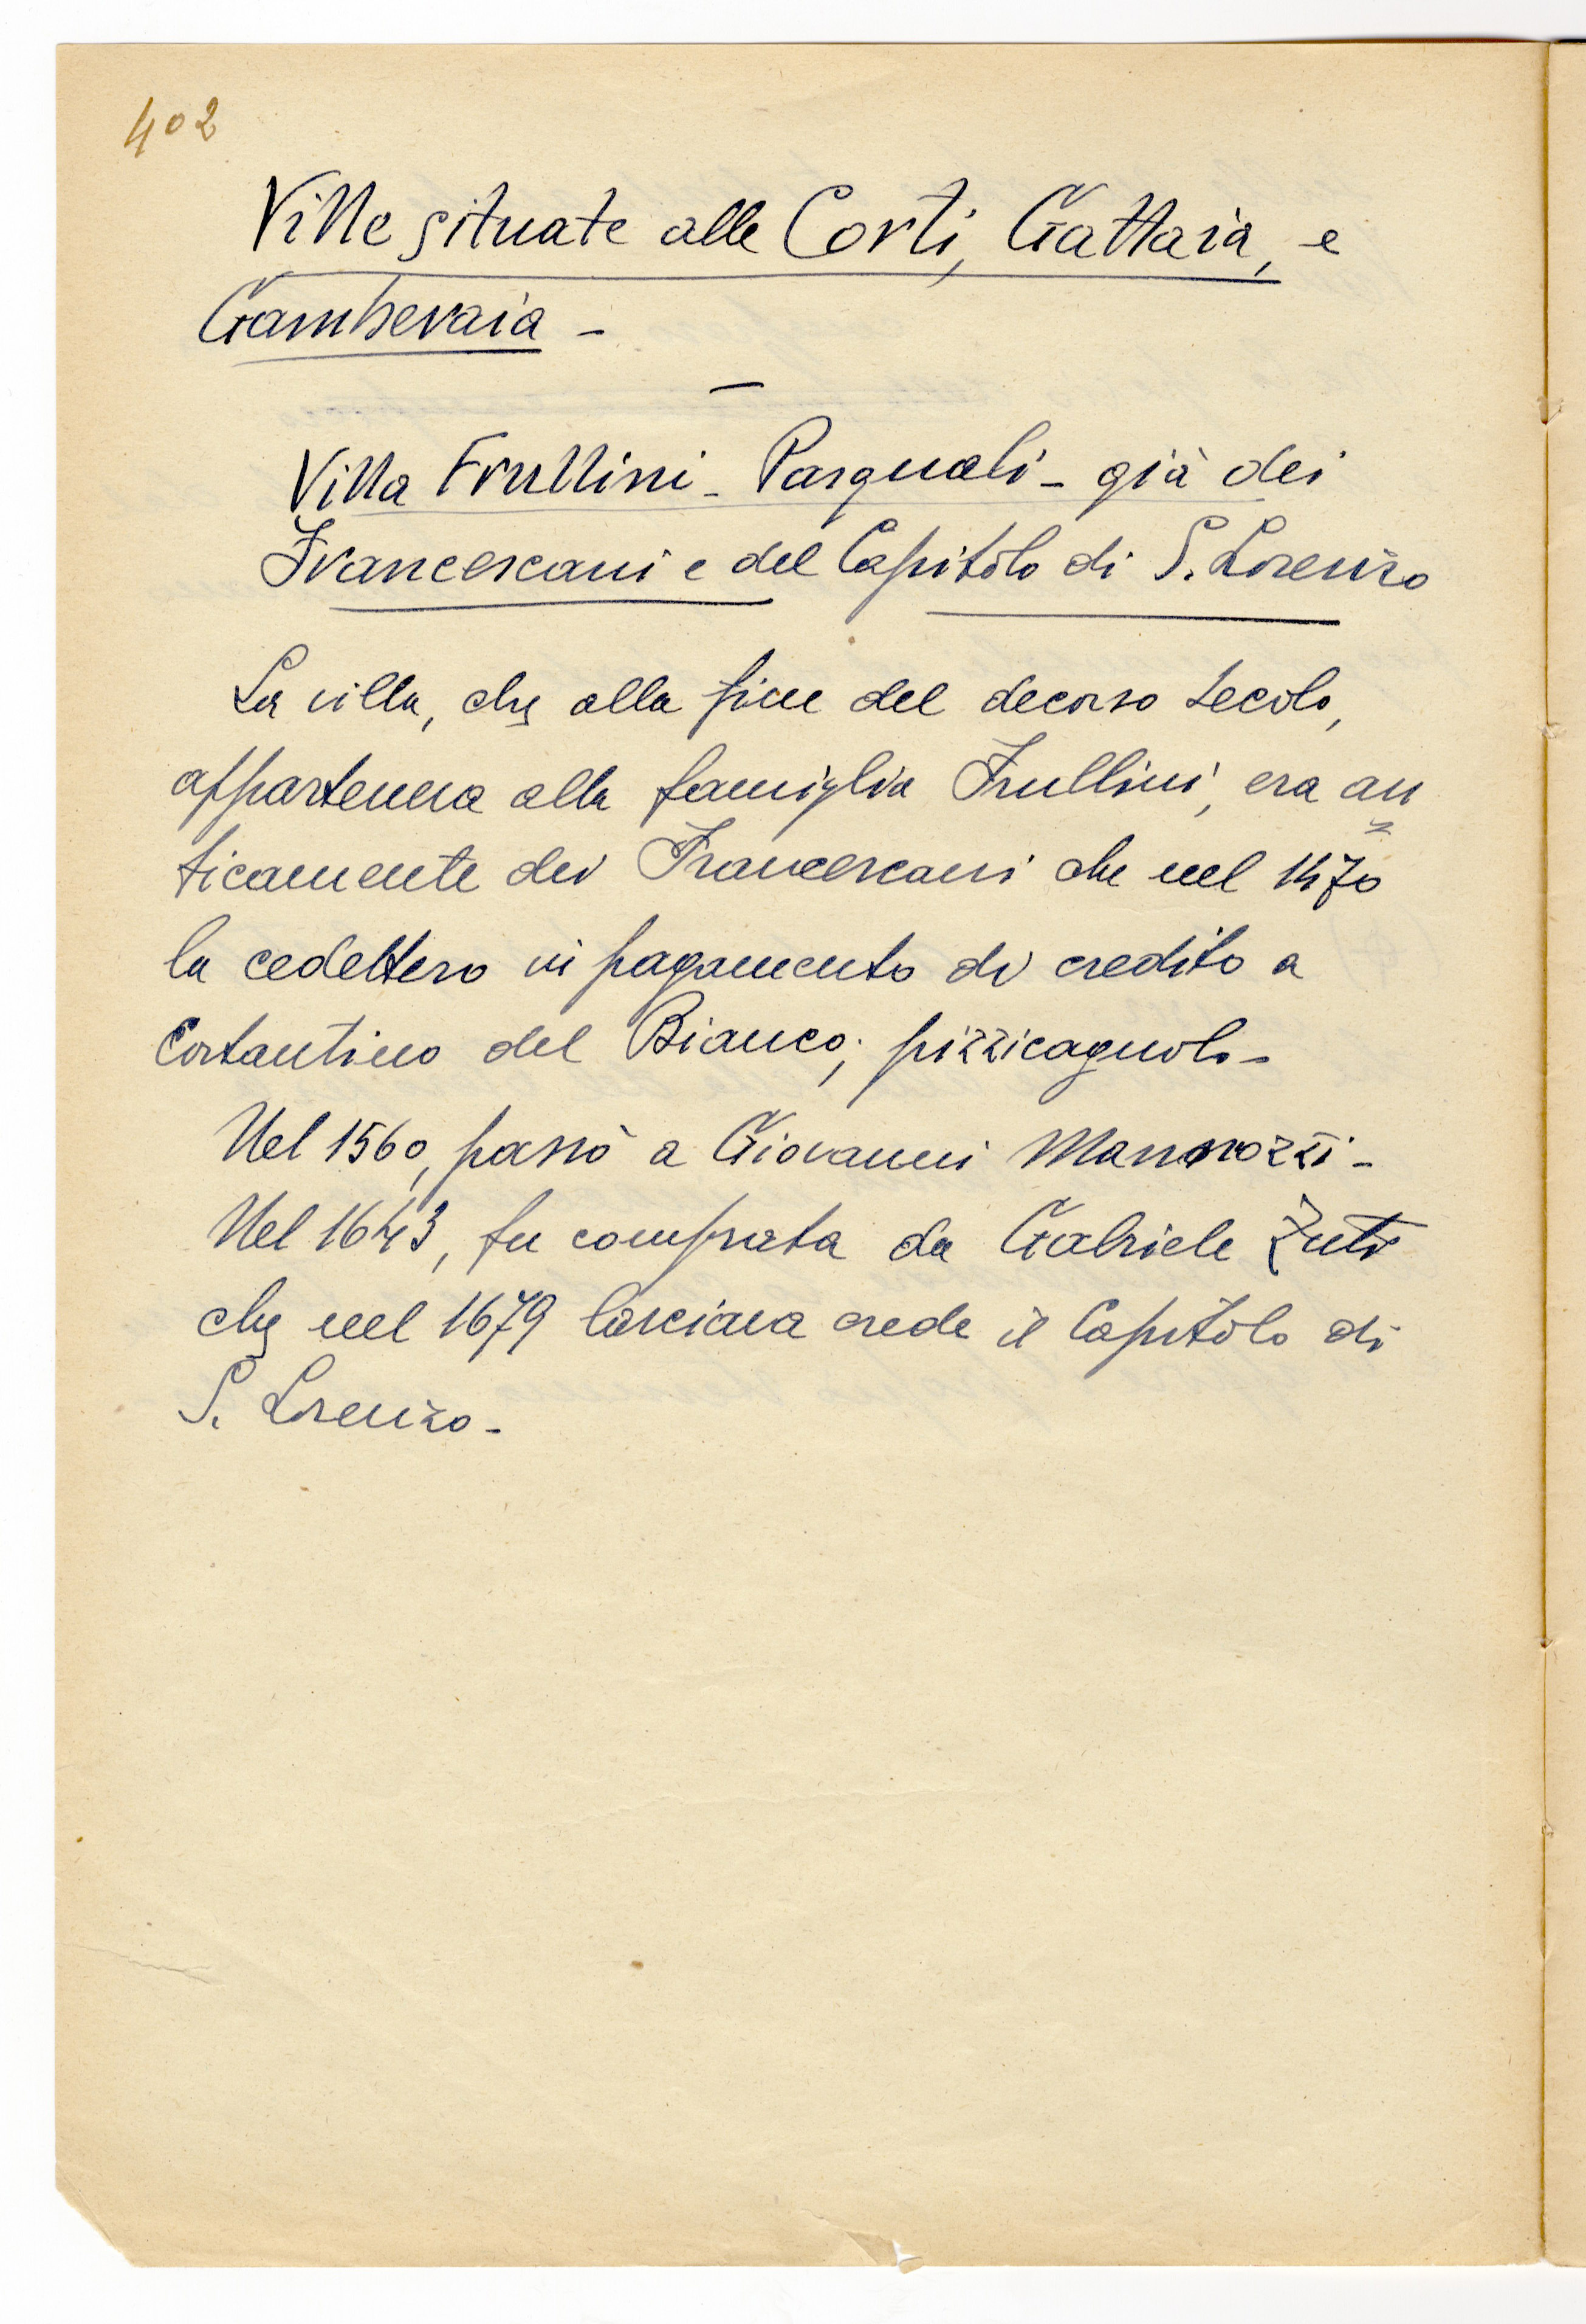 402
Ville situate alle Corti, Gattaia, e
Gamberaia -
Villa Frullini - Pasquali - già dei
Francescani e del Capitolo di S. Lorenzo
La villa, che alla fine del decorso secolo,
appartenna alla famiglia Frullini, era an
ticamente dei Francescani che nel 1470
la cedettero in pagamento di credito a
Costantino del Bianco; pizzicagnolo -
Nel 1560, passò a Giovanni Mannozzi -
Nel 1643, fu comprata da Gabriele Zuti
che nel 1679 lasciava erede il Capitolo di
S. Lorenzo -